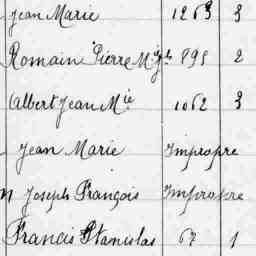 Jean Marie 1263 3
Romain Pierre M. Jh 895 2
Albert Jean Mie 1062 3
Jean Marie Impropre
n Joseph François Impropre
Francis Stanislas 67 1